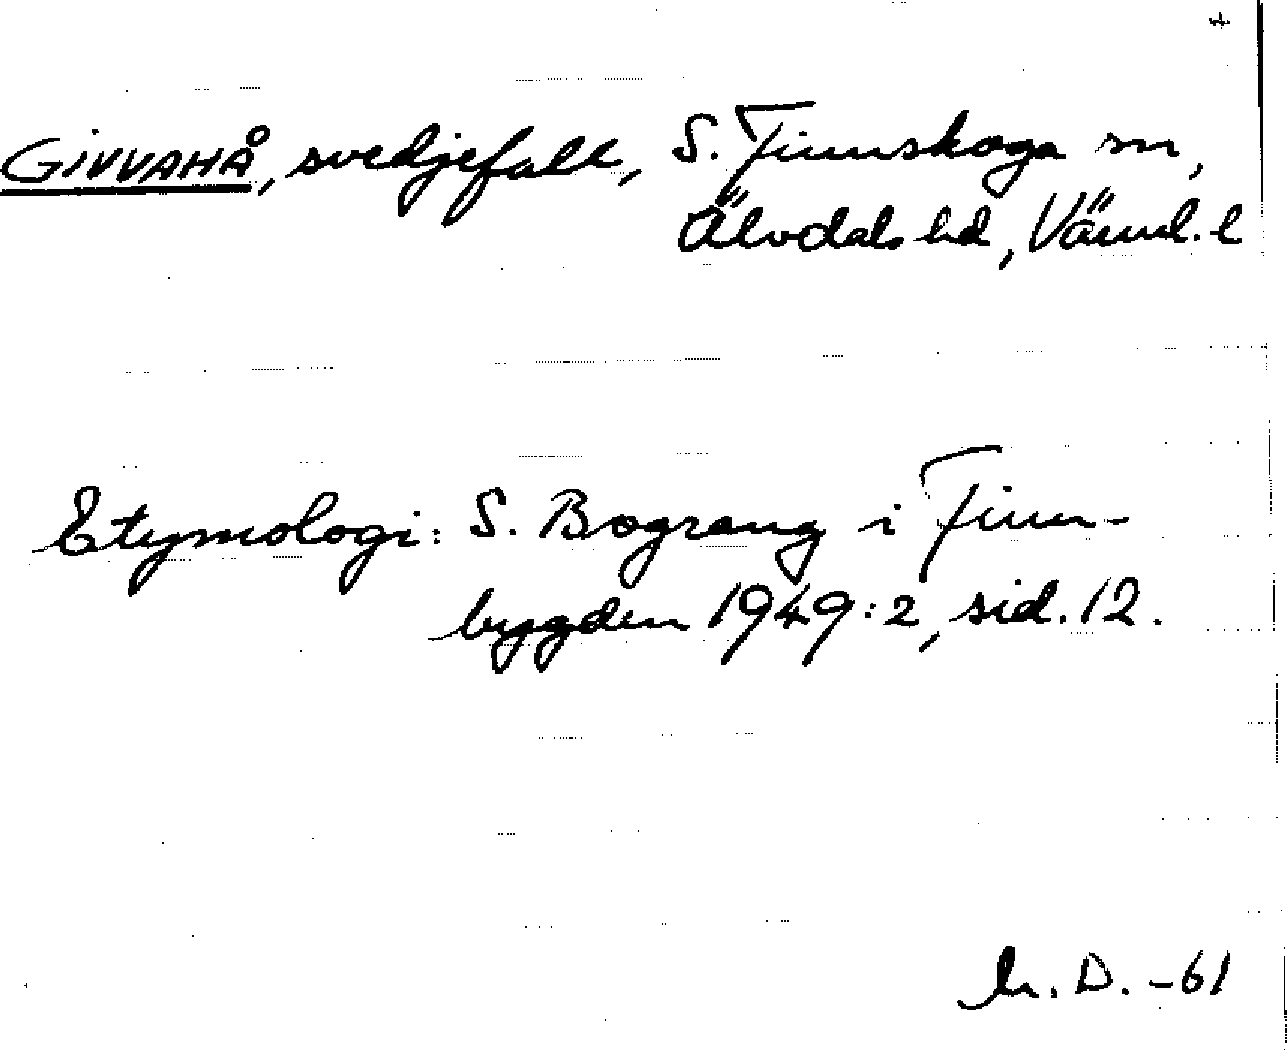 GIVVAHÅ, svedjefall, S. Finnskoga sn,
Älvdals hd, Värml. l
Etymologi: S. Bograng i Finn-
bygden 1949:2, sid. 12.
D. -61